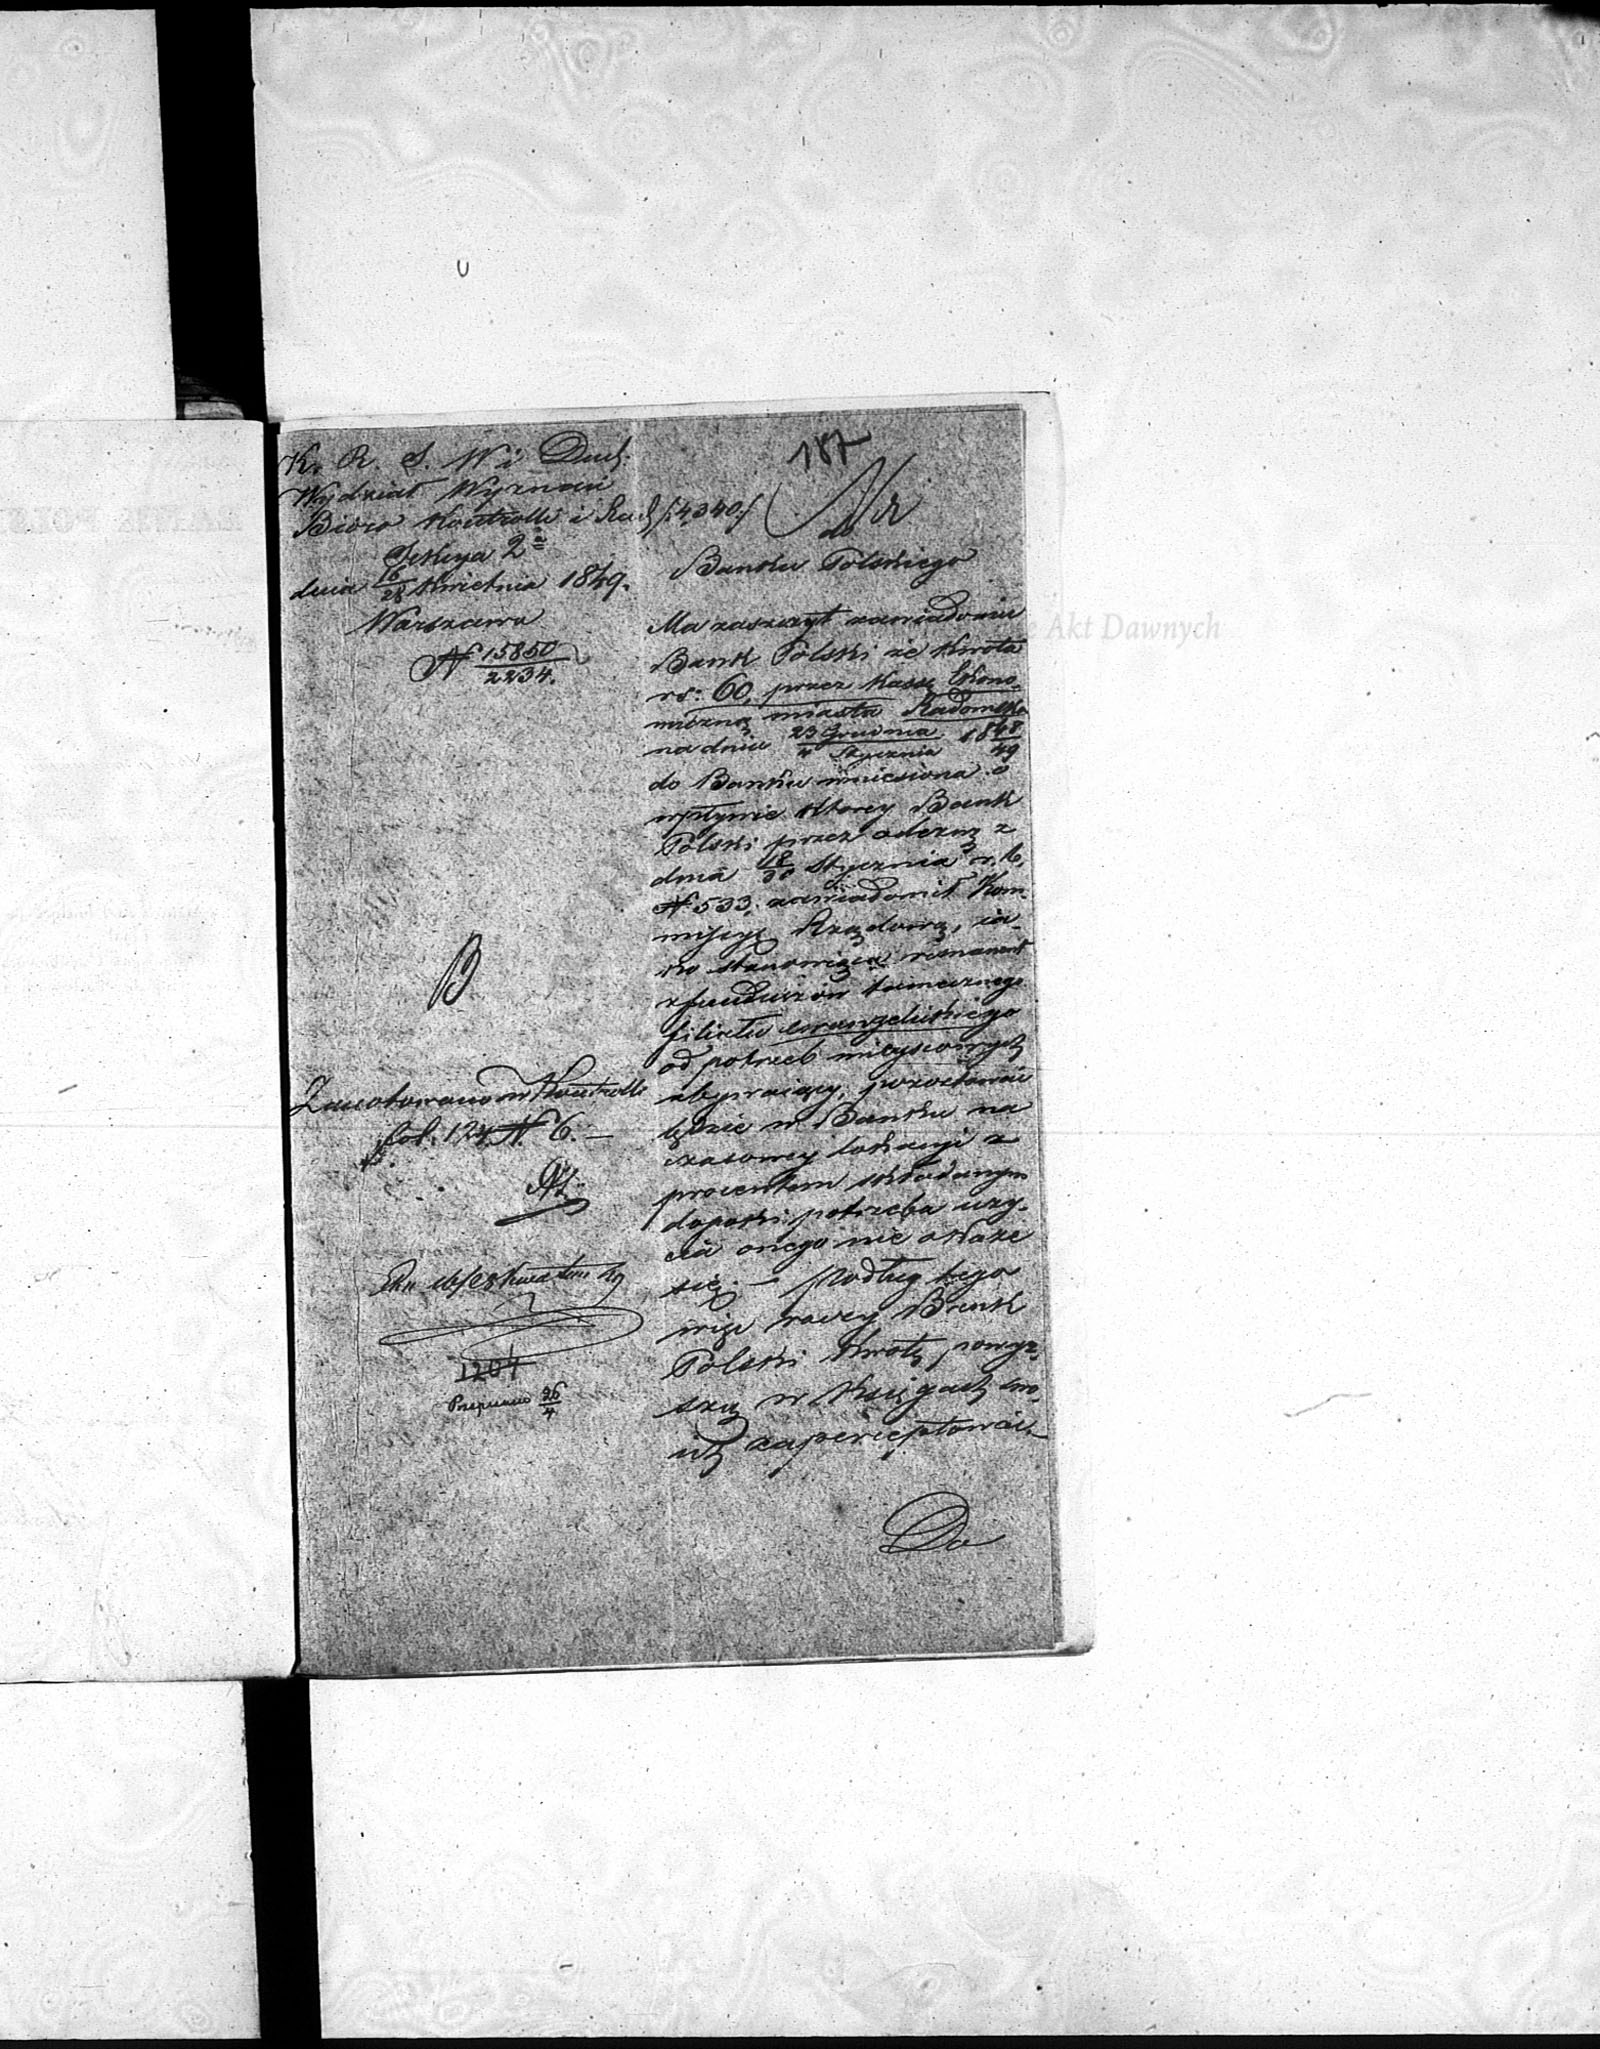 187
K. R. S. W i Duch.
Wydział Wyznań
Bióro Kontrolli i Rach /:4340:/
Sekcya 2ª
dnia 16/28 Kwietnia 1849.
Warszawa
N 15850/2234.
B
Zanotowano w Kontrolli
fol. 124 N 6. —
16/28 Kwietnia 49
1264
Przepisano 26/4
do
Banku Polskiego
Ma zaszczyt zawiadomić
Bank Polski że kwota
rs: 60, przez Kassę Ekono-
miczną miasta Radomska
na dniu 23 Grudnia/4 Stycznia 1848/49
do Banku wniesiona o
wpłynie którey Bank
Polski przez odezwę z
dnia 18/30 Stycznia r. b.
N 533. zawiadomił Kom-
missyę Rządową, ia-
ko stanowiąca remanent
z funduszów tamecznego
filiału ewangelickiego
od potrzeb mieyscowych
zbywaiący, pozostawać
będzie w Banku na
czasowey lokacyi z
procentem składanym
dopóki potrzeba uży-
cia onego nie okaże
się. — Podług tego
więc raczy Bank
Polski kwotę powyż-
szą w Księgach swo-
ich zaperceptować.
Do
Akt Dawnych